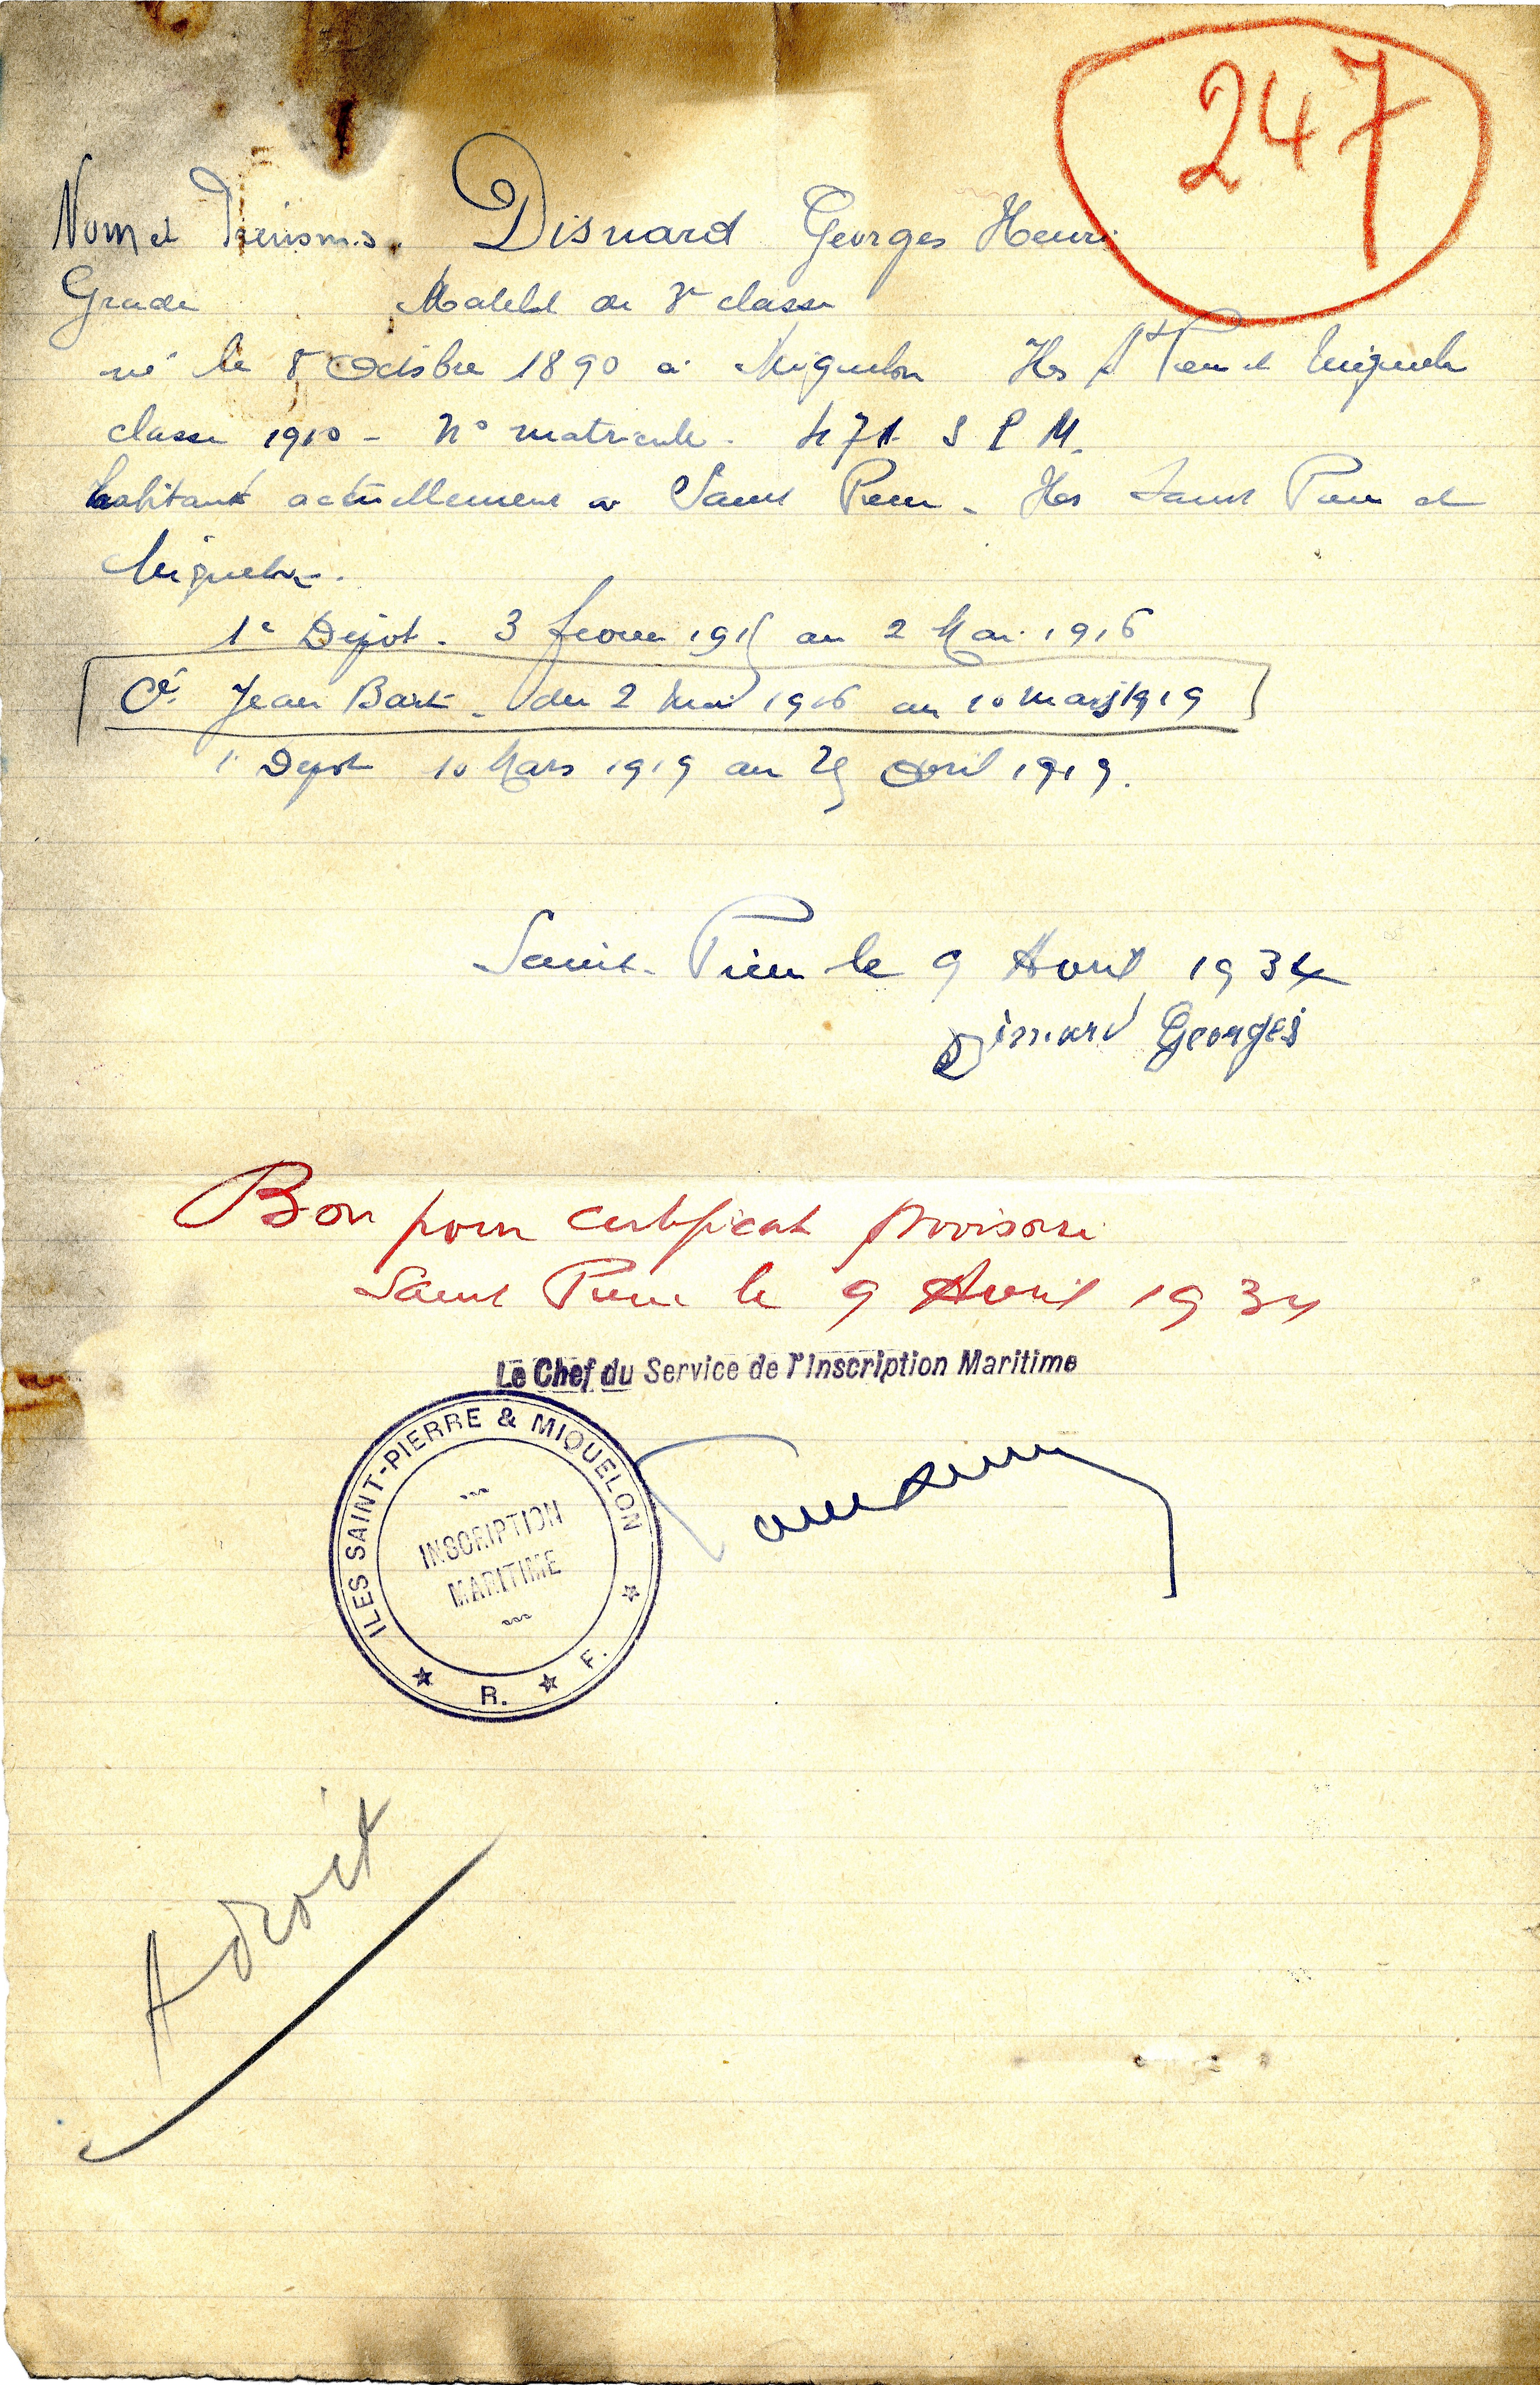 247
Nom et Prénoms. Disnard Georges Henri
Grade Matelot de 3e classe
né le 8 Octobre 1890 à Miquelon Iles St Pierre et Miquelon
classe 1910 - No matricule. 471 S P M.
habitant actuellement à Saint Pierre - Iles Saint Pierre et
Miquelon.
1e Depot. 3 fevrier 1915 au 2 Mai 1916
Cé Jean Bart - du 2 Mai 1916 au 10 mars 1919
1e Depot 10 Mars 1919 au 25 Avril 1919.
Saint-Pierre le 9 Avril 1934
Disnard Georges
Bon pour certificat provisoire
Saint Pierre le 9 Avril 1934
Le Chef du Service de l'Inscription Maritime
ILES SAINT-PIERRE & MIQUELON
INSCRIPTION
MARITIME
R. F.
A droit